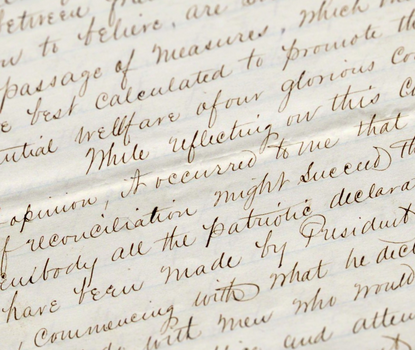 between
to believe, are
passage of measures, which
best calculated to promote the
wellfare of our glorious
While reflecting on this
opinion, it occurred to me that
of reconciliation might succeed
embody all the patriotic declara
have been made by President
commencing with what he
with men who would
and